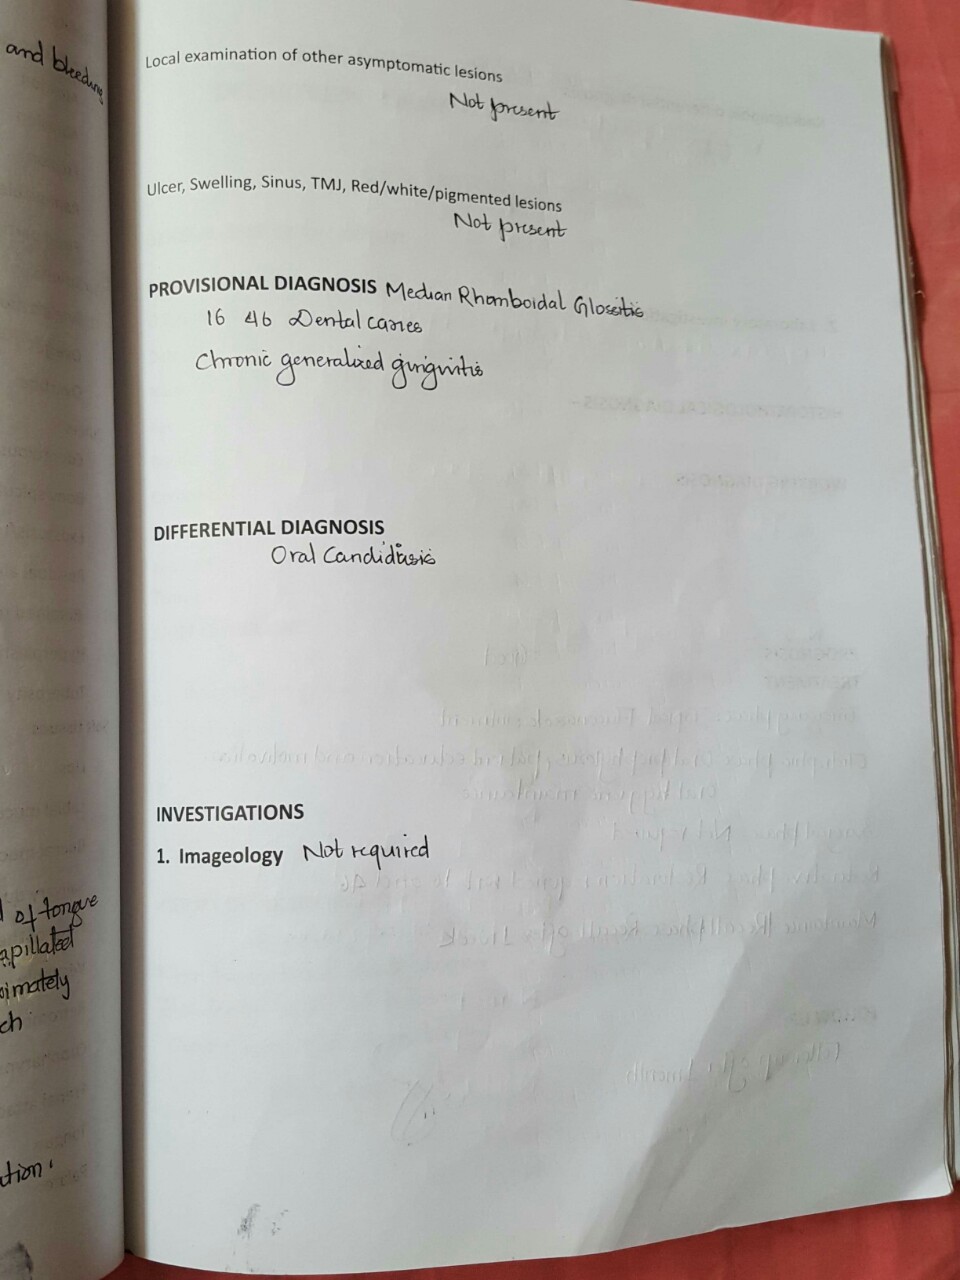 and bleeding
Local examination of other asymptomatic lesions
Not present
Ulcer, Swelling, Sinus, TMJ, Red/white/pigmented lesions
Not present
PROVISIONAL DIAGNOSIS Median Rhomboidal Glossitis
16 46 Dental caries
Chronic generalized gingivitis
DIFFERENTIAL DIAGNOSIS
Oral Candidiasis
INVESTIGATIONS
1. Imageology Not required
of tongue
apillated
oimately
ch
ation.